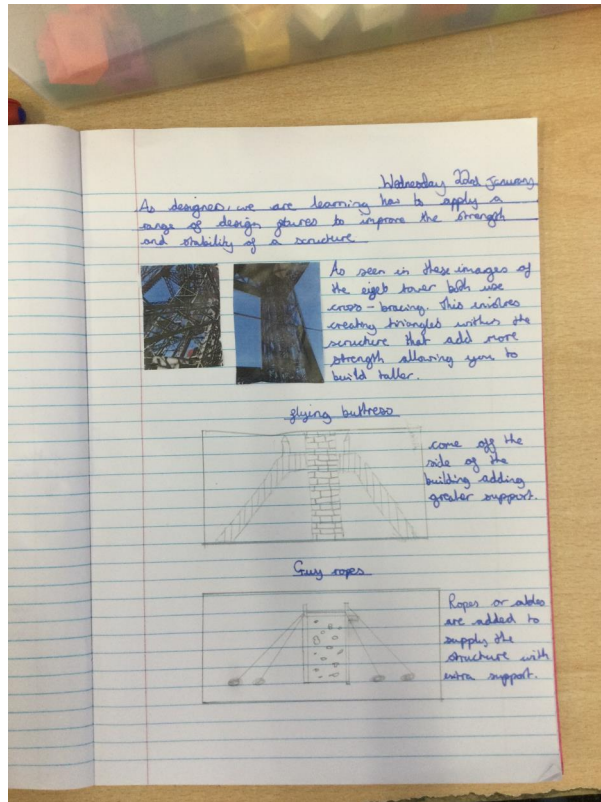 Wednesday 22nd January
As designers, we are learning has to apply a
range of design gtures to improve the strength
and stability of a scructure
As seen in these images of
the eigeb tower both use
cross-bracing. This involves
creating triangles within the
scructure that add more
strength allowing you to
build taller.
flying buttress
come off the
side of the
building adding
greater support.
Guy ropes
Ropes or cables
are added to
supply the
structure with
extra support.